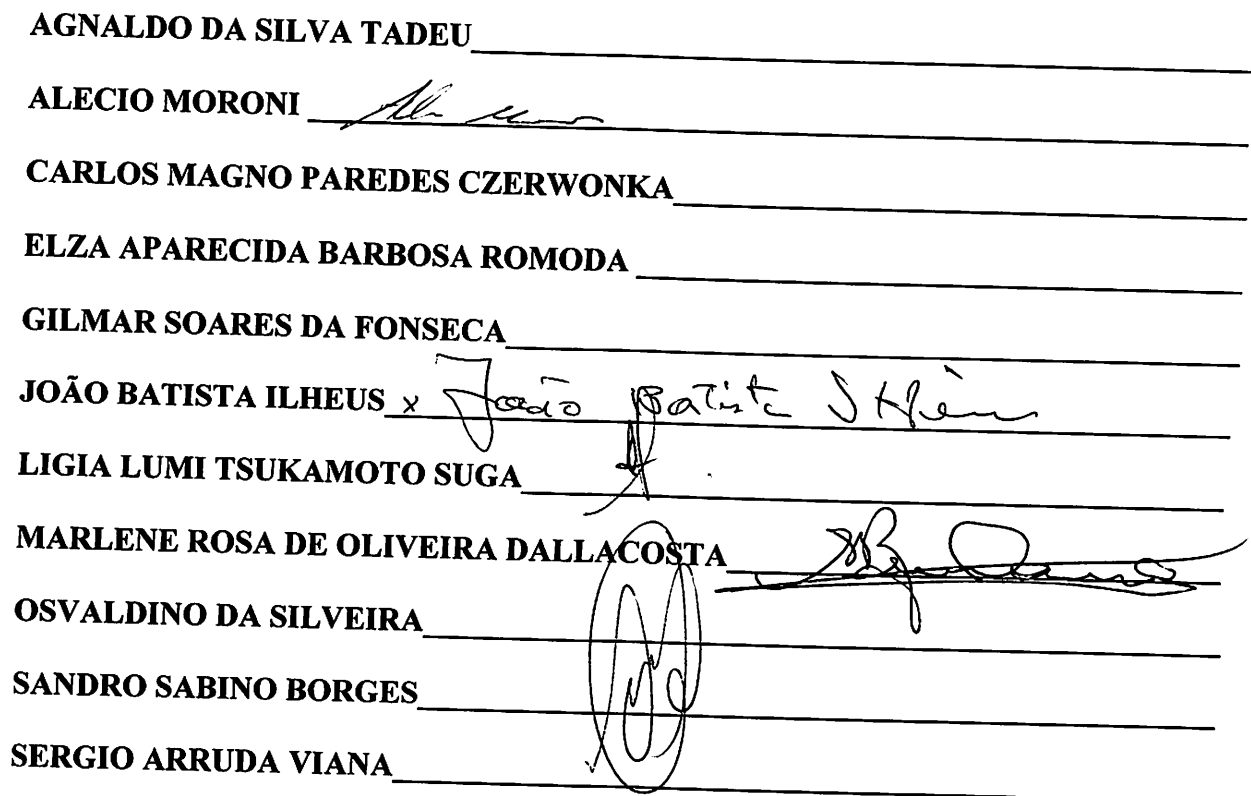 AGNALDO DA SILVA TADEU
ALECIO MORONI
CARLOS MAGNO PAREDES CZERWONKA
ELZA APARECIDA BARBOSA ROMODA
GILMAR SOARES DA FONSECA
JOÃO BATISTA ILHEUS x João Batista
LIGIA LUMI TSUKAMOTO SUGA
MARLENE ROSA DE OLIVEIRA DALLACOSTA
OSVALDINO DA SILVEIRA
SANDRO SABINO BORGES
SERGIO ARRUDA VIANA